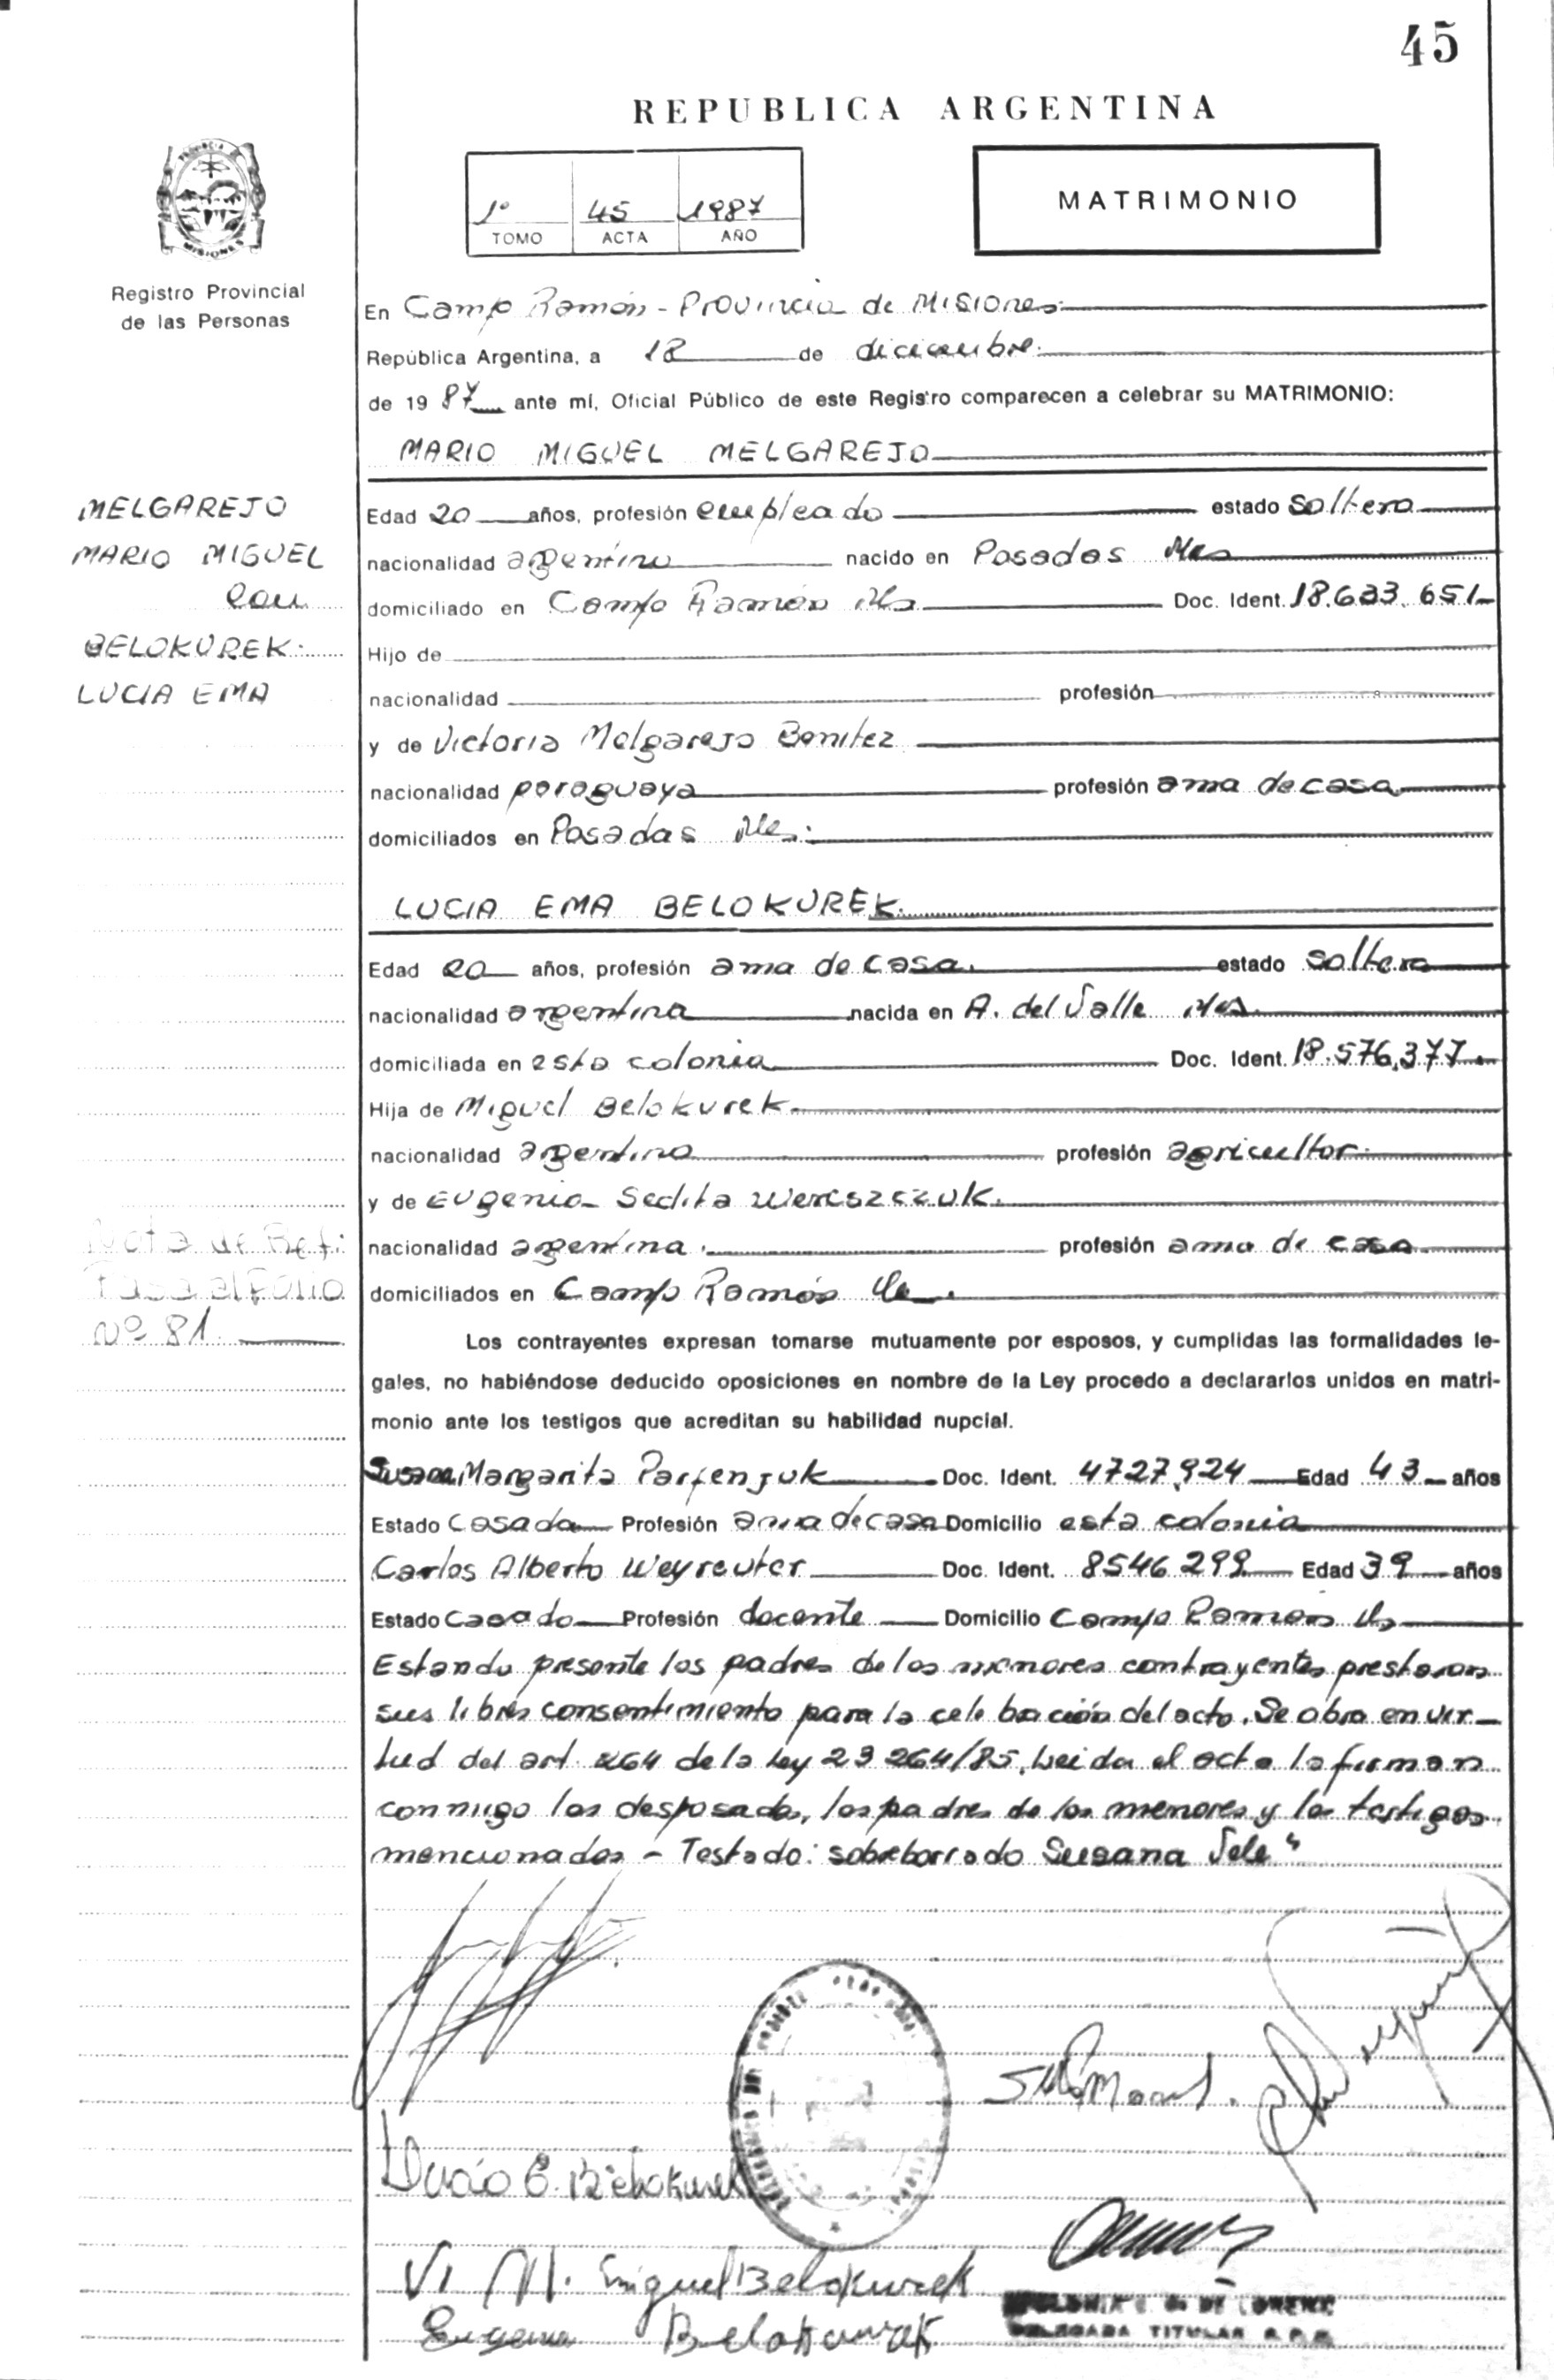 45
REPUBLICA ARGENTINA
PROVINCIA
MISIONES
1º 45 1987
TOMO ACTA AÑO
MATRIMONIO
Registro Provincial
de las Personas
En Campo Ramón - Provincia de Misiones
República Argentina, a 18 de diciembre
de 1987 ante mí, Oficial Público de este Registro comparecen a celebrar su MATRIMONIO:
MARIO MIGUEL MELGAREJO
MELGAREJO
MARIO MIGUEL
con
BELOKUREK
LUCIA EMA
Edad 20 años, profesión empleado estado soltero
nacionalidad argentino nacido en Posadas Mns
domiciliado en Campo Ramón Mns Doc. Ident. 18.633.651
Hijo de
nacionalidad profesión
y de Victoria Melgarejo Benitez
nacionalidad paraguaya profesión ama de casa
domiciliados en Posadas Mns
LUCIA EMA BELOKUREK
Edad 20 años, profesión ama de casa estado soltera
nacionalidad argentina nacida en A. del Valle Mns
domiciliada en esta colonia Doc. Ident. 18.576.377
Hija de Miguel Belokurek
nacionalidad argentino profesión agricultor
y de Eugenia Sedita
nacionalidad argentina profesión ama de casa
domiciliados en Campo Ramón Mns
Nota de Ref:
Pasa al Folio
Nº 81
Los contrayentes expresan tomarse mutuamente por esposos, y cumplidas las formalidades le-
gales, no habiéndose deducido oposiciones en nombre de la Ley procedo a declararlos unidos en matri-
monio ante los testigos que acreditan su habilidad nupcial.
Susana Margarita Parfenjuk Doc. Ident. 4727.924 Edad 43 años
Estado casada Profesión ama de casa Domicilio esta colonia
Carlos Alberto Weyreuter Doc. Ident. 8546.299 Edad 39 años
Estado casado Profesión docente Domicilio Campo Ramón Mns
Estando presente los padres de los menores contrayentes prestaron
sus libres consentimiento para la celebración del acto. Se obra en vir-
tud del art. 264 de la Ley 23264/85. Leida el acta la firman
conmigo los desposados, los padres de los menores y los testigos
mencionados - Testado: sobreborrado Susana Vale"
Lucia E. Belokurek
V M. Miguel Belokurek
Eugenia Belokurek
DE LORENZ
DELEGADA TITULAR R.P.P.